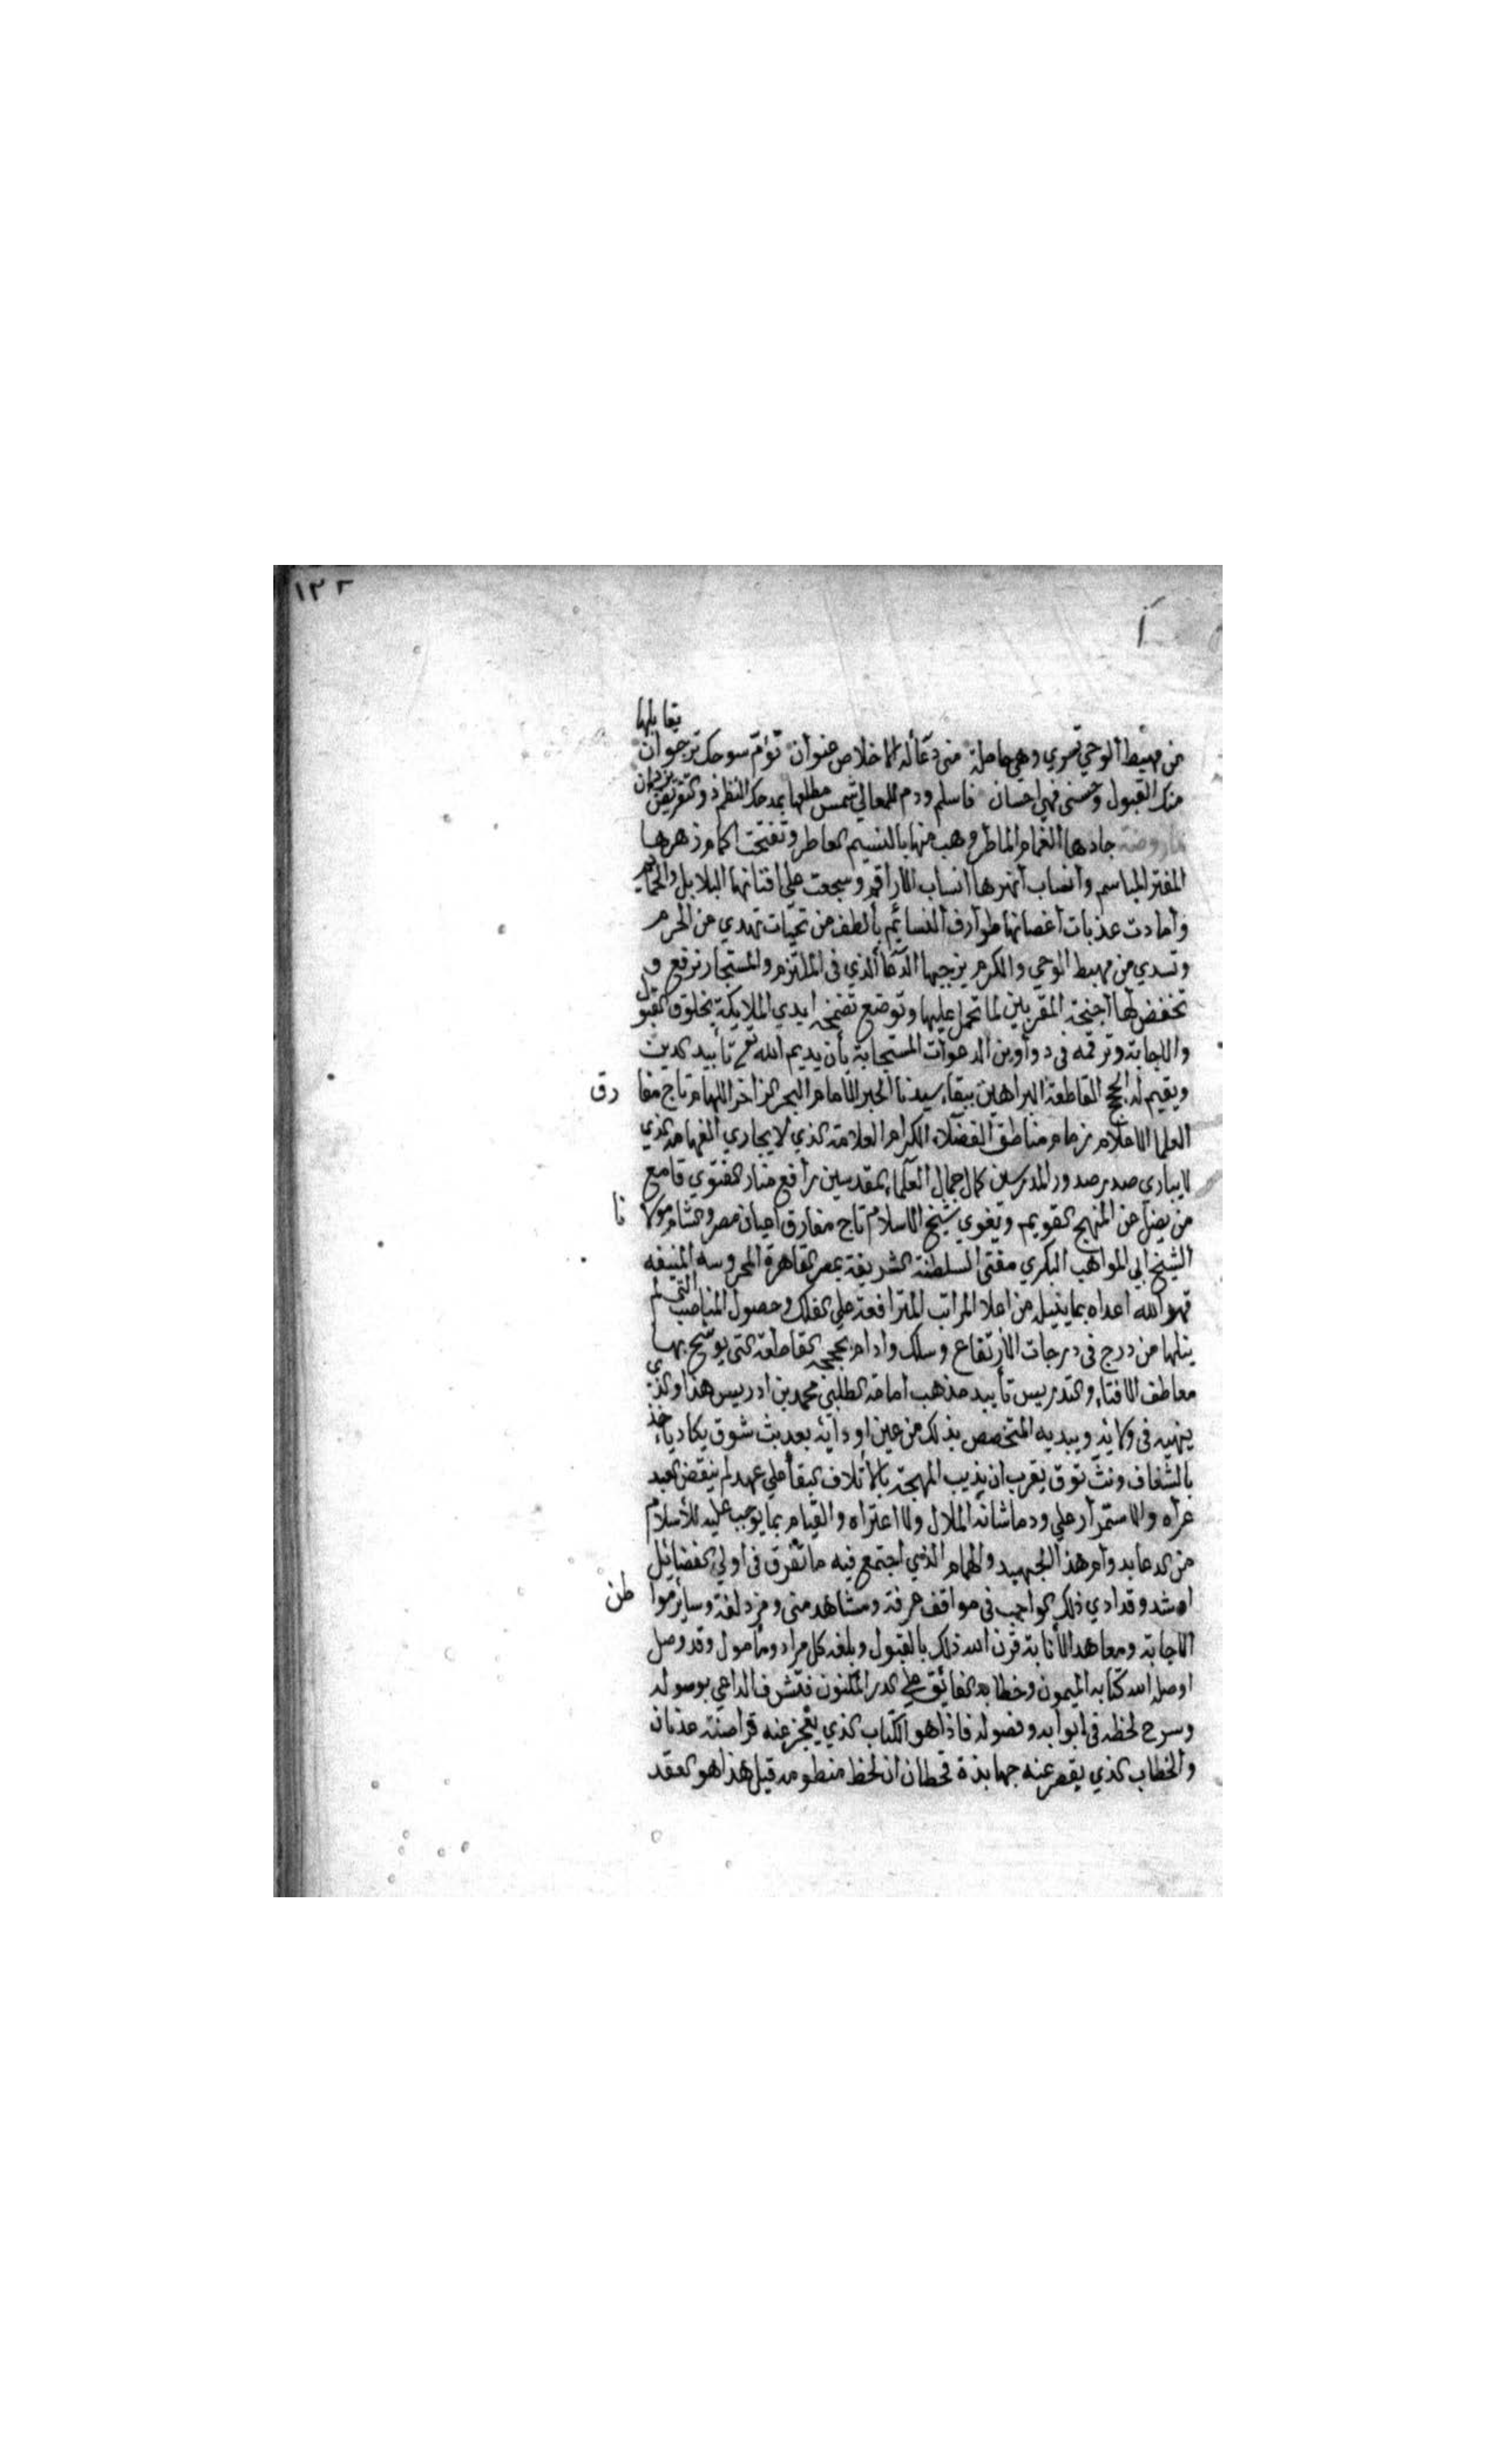 ١٢٢
يقابلها
من مهبط الوحي تسري وهي حاملة مني دعا له الاخلاص عنوان تؤم سوحك ترجوان
منك القبول وحسنى فهي احسان فاسلم ودم للمعالي شمس مطلعها بمدحك النظم والتقريض يزدان
ما روضة جادها الغمام الماطر وهب منها بالنسيم العاطر وتفتحت اكمام زهرها
المفتر المباسم وانساب انهرها انسياب الاراقم وسجعت على افنانها البلابل والحمائم
وامادت عذبات اغصانها طوارف النسائم بألطف من تحيات تهدي من الحرم
وتسدي من مهبط الوحي والكرم يزجيها الدعا الذي في الملتزم والمستجار ترفع و
تخفض لها اجنحة المقربين لما تحمل عليها وتوضع تضمخه ايدي الملايكة بخلوق القبول
والاجابة وترقمه في دواوين الدعوات المستجابة بأن يديم الله تع تأييد الدين
ويقيم له الحجج القاطعة البراهين ببقاء سيدنا الحبر الامام البحر الزاخر اللهام تاج مفا رق
العلما الاعلام زمام مناطق الفضلاء الكرام العلامة الذي لا يجاري الفهامة الذي
لا يباري صدر صدور المدرسين كمال جمال العلماء المقدسين رافع منار الفتوي قامع
من يضل عن المنهج القويم ويغوي شيخ الاسلام تاج مفارق اعيان مصر والشام مولا نا
الشيخ ابي المواهب البكري مفتي السلطنة الشريفة بمصر القاهرة المحروسه المنيفه
قهر الله اعداه بما ينيله من اعلا المراتب المترافعة على الفلك وحصول المناصب التي لم
ينلها من درج في درجات الارتفاع وسلك وادام بحججه القاطعة التي يوشح بها
معاطف الافتاء والتدريس تأييد مذهب امامه المطلبي محمد بن ادريس هذا والذي
ينهيه في ولائه ويبديه المتخصص بذلك من عين اودائه بعد بث شوق يكاد ياخذ
بالشغاف ونث توق يقرب ان يذيب المهجة بالاتلاف البقا على عهد لم ينقض البعد
عراه والاستمرار على ود ما شانه الملال ولا اعتراه والقيام بما يوجب عليه للأسلام
من الدعا بدوام هذا الجهبيد والهمام الذي اجتمع فيه ما تفرق في اولي الفضائل
وقد ادي ذلك الواجب في مواقف عرفة ومشاهد منى ومزدلفة وسائر موا طن
الاجابة ومعاهد الأنابة قرن الله ذلك بالقبول وبلغه كل مراد ومأمول وقد وصل
اوصله الله كتابه الميمون وخطابه الفائق على الدر المكنون فتشرف الداعي بوصوله
وسرح لحظه في ابوابه وفصوله فاذا هو الكتاب الذي يعجز عنه قراضنة عدنان
والخطاب الذي يقصر عنه جهابذة قحطان ان لحظ منظومه قيل هذا هو العقد